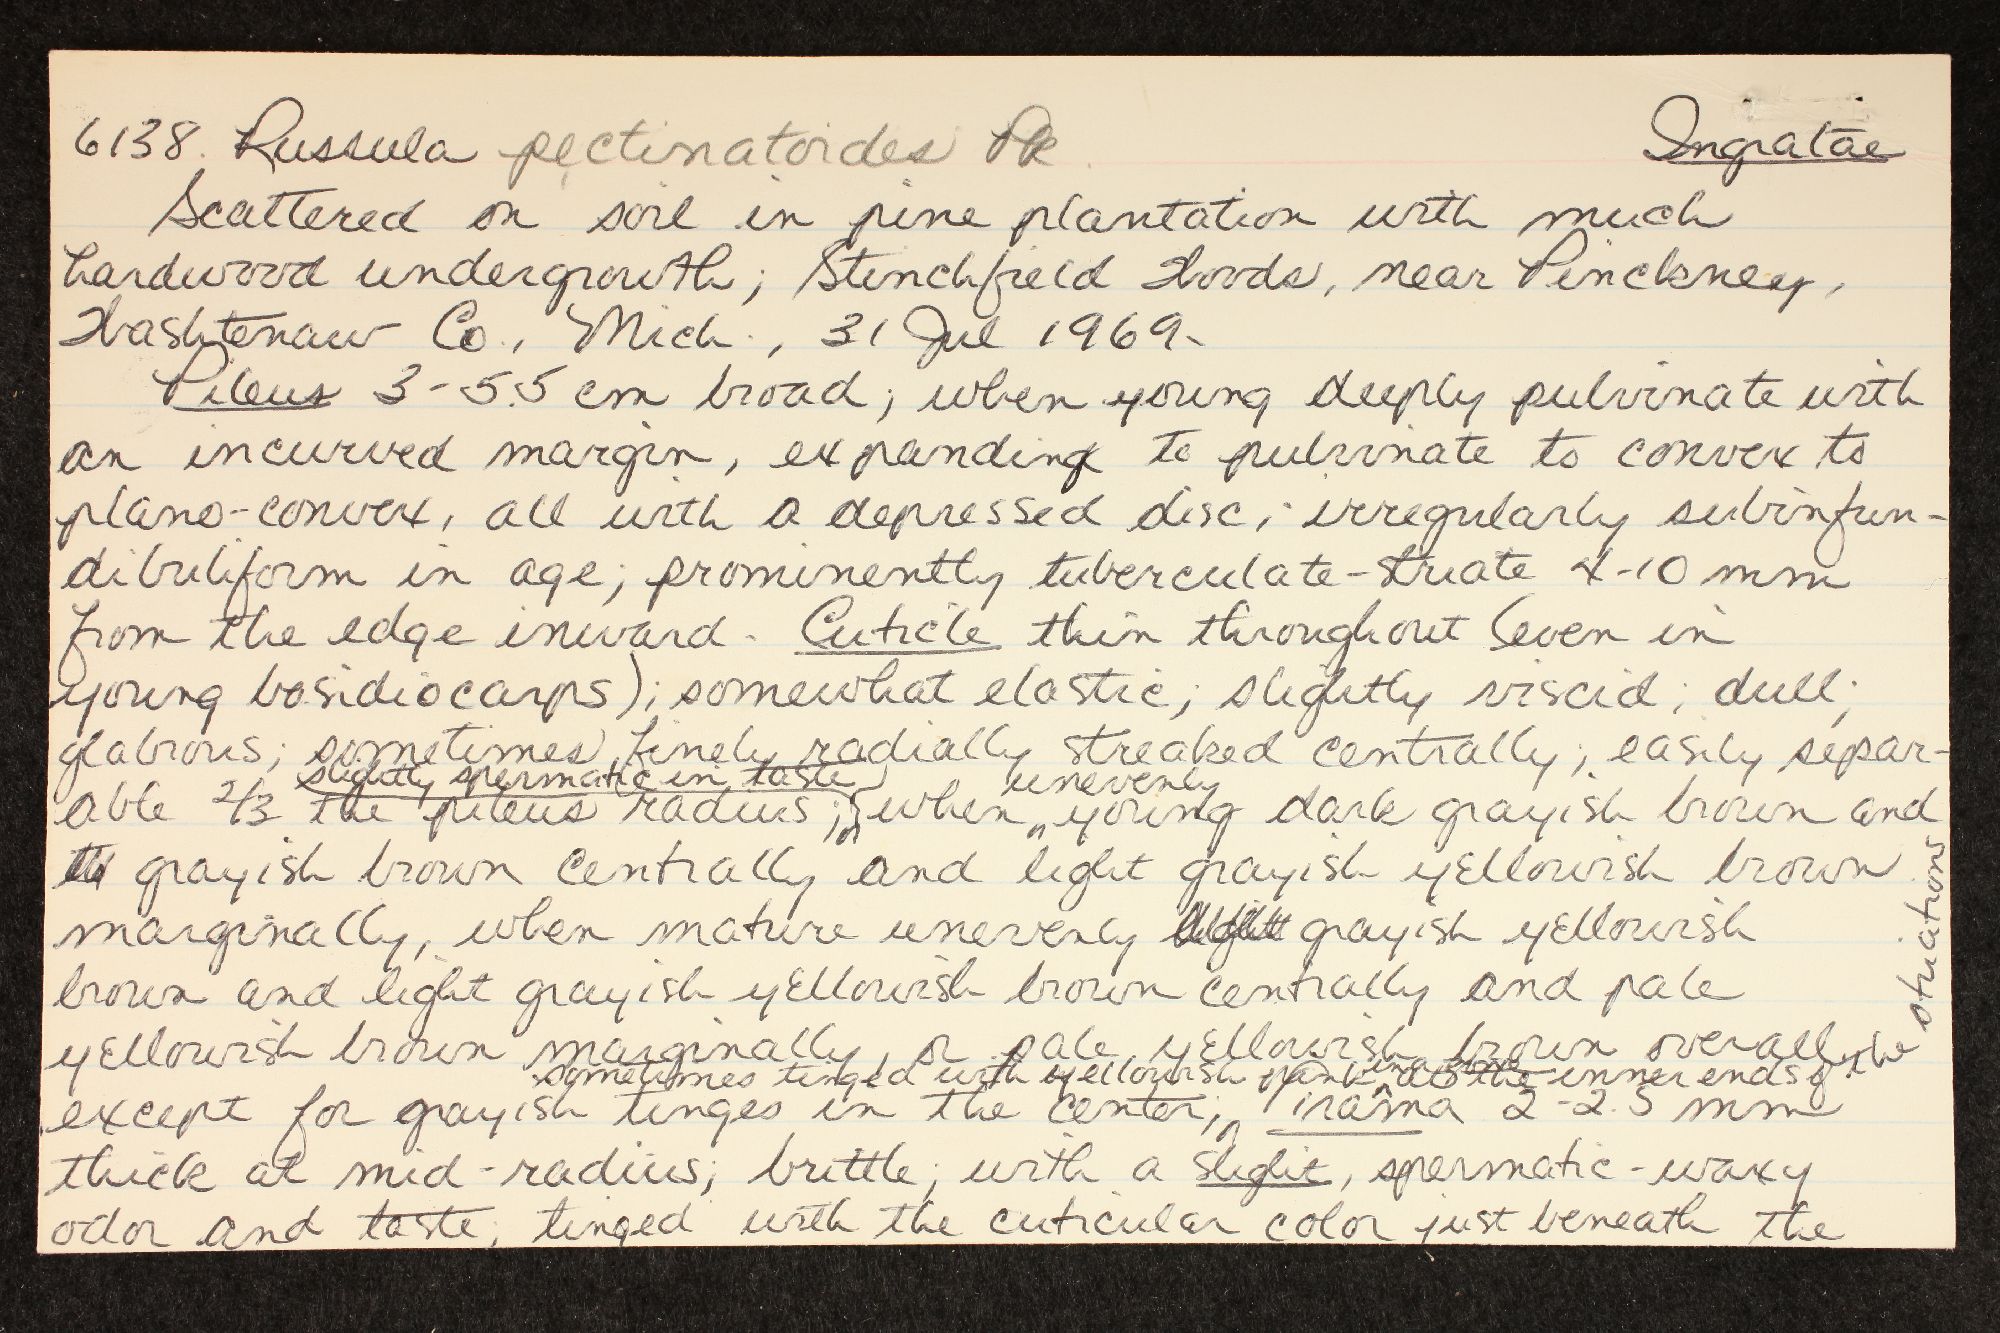 6138. Russula pectinatoides Pk.
Ingratae
Scattered on soil in pine plantation with much
hardwood undergrowth; Stinchfield Woods, near Pinckney,
Washtenaw Co., Mich., 31 Jul 1969.
Pileus 3-5.5 cm broad; when young deeply pulvinate with
an incurved margin, expanding to pulvinate to convex to
plano-convex, all with a depressed disc; irregularly subinfun-
dibuliform in age; prominently tuberculate-striate 4-10 mm
from the edge inward. Cuticle thin throughout (even in
young basidiocarps); somewhat elastic; slightly viscid; dull;
glabrous; sometimes finely radially streaked centrally; easily separ-
slightly spermatic in taste unevenly
able 2/3 the pileus radius; when young dark grayish brown and
grayish brown centrally and light grayish yellowish brown
marginally, when mature unevenly grayish yellowish
brown and light grayish yellowish brown centrally and pale
yellowish brown marginally, or pale yellowish brown overall
sometimes tinged with yellowish pink at the inner ends of the striations
except for grayish tinges in the center; Trama 2-2.5 mm
thick at mid-radius; brittle; with a slight, spermatic-waxy
odor and taste; tinged with the cuticular color just beneath the